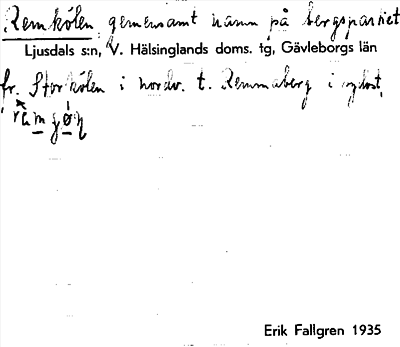 Remkölen, gemensamt namn på bergspartiet
Ljusdals s:n, V. Hälsinglands doms. tg, Gävleborgs län
fr. Storkölen i nordv. t. Remmaberg i sydost,
Erik Fallgren 1935